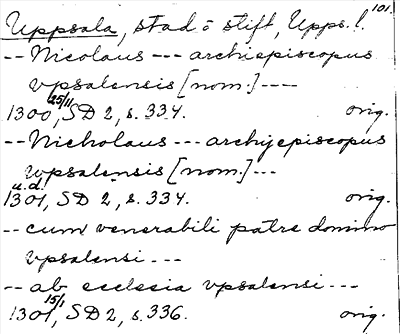 101.
Uppsala, stad o stift, Upps. l.
-- Nicolaus --- archiepiscopus
vpsalensis [nom.] ---
1300 25/11, SD 2, s. 334. orig.
-- Nicholaus --- archyepiscopus
vpsalensis [nom.] ---
1301 u.d., SD 2, s. 334. orig.
-- cum venerabili patre domino
vpsalensi ---
-- ab ecclesia vpsalensi ---
1301 15/1, SD 2, s. 336. orig.